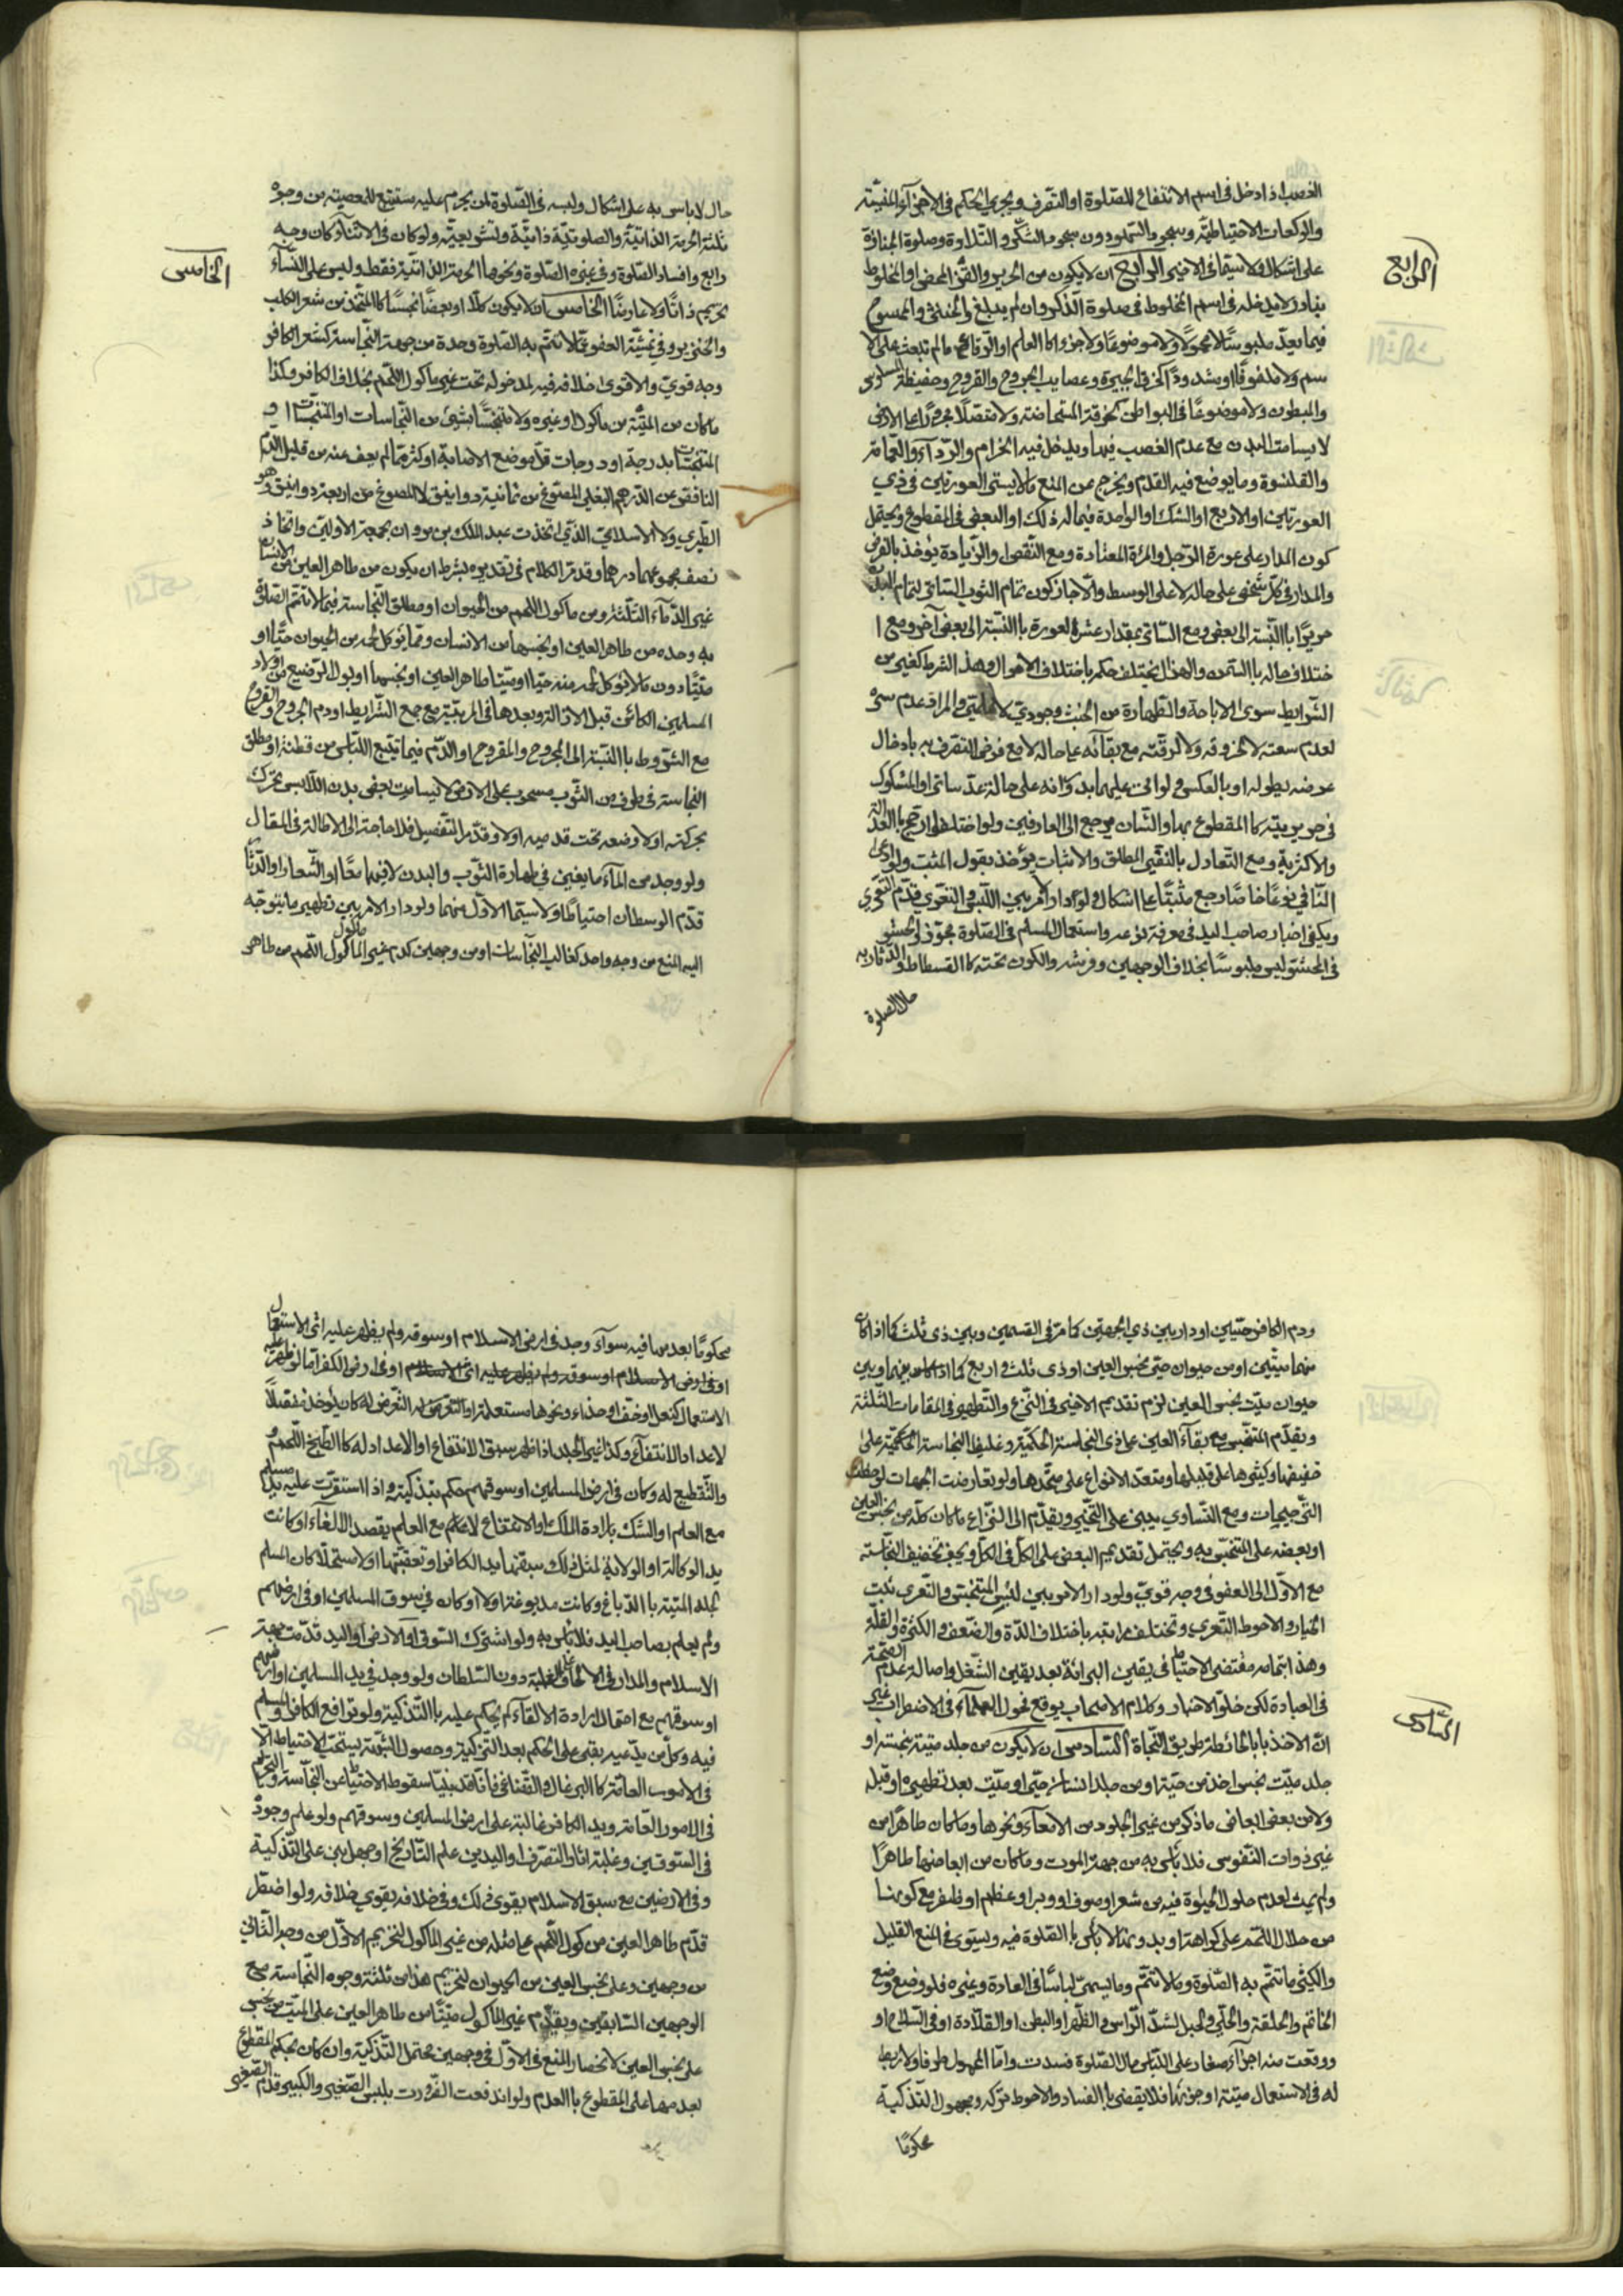 الغصب اذا دخل في اسم الانتفاع للصّلوة او التصّرف ويجري الحكم في الاجزآء المنفيّة
والركعات الاحتياطيّة وسجود السّهو دون سجود الشّكر والتّلاوة وصلوة الجنازة
على اشكال ولا سيّما في الاخير الرابع ان لا يكون من الحرير والقزّ المحض او المخلوط
الرابع
بنادر لا يدخله في اسم المخلوط في صلوة الذّكر وان لم يبلغ والخنثى والممسوح
فيما يعدّ ملبوسًا لا محمولًا ولا موضوعًا ولا جزوا كالعلم او الرّقاع ما لم تبعث على الا
سم ولا ملفوفًا او مشدودًا كخرق الجبيرة وعصايب الجروح والقروح وحفيظة المسلوس
والمبطون ولا موضوعًا في البواطن كخرقة المستحاضة ولا متصلًا مجرورًا على الارض
لا يسامت البدن مع عدم الغصب فيها ويدخل فيه الحزام والرّدآء والعمامة
والقلنسوة وما يوضع فيه القدم ويخرج عن المنع ما لا يستر العورتين في ذي
العورتين او الاربع او الشك او الواحدة فيما له ذلك او البعض في المقطوع ويحتمل
كون المدار على عورة الرّجل والمرئة المعتادة ومع النّقص والزّيادة يؤخذ بالفرض
والمدار في كلّ شخص على حاله لا على الوسط والّا جاز كون تمام الثوب السّاتر لتمام البدن
حريرًا باالنّسبة الى بعض ومع السّاتر بمقدار عشرة لعورة باالنّسبة الى بعض آخر ومع ا
ختلاف حاله باالسّمن والهزل يختلف حكمه باختلاف الاحوال وهذا الشرط كغيره من
الشّرايط سوى الاباحة والطّهارة من الخبث وجودي لا علمي والمراد عدم ستره
لعدم سعته لا لخروقه ولا لرقّته مع بقآئه على حاله لا مع فرض التصّرف به بادخال
عرضه بطوله او بالعكس ولو اتى عليهما بدورانه على حالة عدّ ساترا والمشكوك
في حريريته كالمقطوع بها والشّان يرجع الى العارفين ولو اختلفوا رجح باالعدالة
والاكثرية ومع التّعادل بالنّفي المطلق والاثبات يؤخذ بقول المثبت ولو ادعى
النّافي نوعًا خاصًا رجع مثبتًا على اشكال ولو دار الامر بين اللّبس والتعّري قدّم التعّري
ويكفي اخبار صاحب اليد في معرفة نوعه واستعمال المسلم في الصّلوة مجوّز والحشو
في المحشو ليس ملبوسًا بخلاف الوجهين وفرشه والكون تحته كالفسطاط والتّدثار به
حال الصلوة
حال لا باس به على اشكال ولبسه في الصّلوة لمن يحرم عليه مستتبع للمعصية من وجوه
ثلثة الحرمة الذاتيّة والصلوتيّة ذاتيّة وتشريعيّة ولو كان في الاثنآء كان وجه
رابع وافساد الصّلوة وفي غيره الصّلوة ونحوها الحرمة الذاتيّة فقط وليس على النسآء
الخامس
تحريم ذاتًا ولا عارضًا الخامس ان لا يكون كلّا او بعضًا نجسًا كالمتّخذ من شعر الكلب
والخنزير وفي تمشية العفو عمّا لا تتمّ به الصّلوة وحده من جهة النّجاسة كشعر الكافر
وجه قويّ والاقوى خلافه فيه لدخوله تحت غير ماكول اللّحم بخلاف الكافر وكذا
ما كان من الميّتة من ماكول او غيره ولا متنجسًا بشيئ من النّجاسات او المتنجّسات او
المتنجسّات بدرجة او درجات قلّ موضع الاصابة او كثر ممّا لم يعف عنه من قليل الدّم
الناقص عن الدّرهم البغلي المصوّغ من ثمانية دوانيق لا المصوغ من اربعة دوانيق وهو
الطّبري ولا الاسلامي الّذي اتخذت عبد الملك بن مروان بجمعه الاوليّن واتخاذ
نصف مجموعهما درهمًا وقد مرّ الكلام في تقديره بشرط ان يكون من طاهر العين من الانسان
غير الدّمآء الثّلثة ومن ماكول اللّحم من الحيوان او مطلق النّجاسة فيما لا تتم الصّلوة
به وحده من طاهر العين او نجسها من الانسان وممّا يؤكل لحمه من الحيوان حيًّا او
ميّتًا دون ما لا يؤكل لحمه منه حيًّا او ميّتًا طاهر العين او نجسها او بول الرّضيع من اولاد
المسلمين الكائن قبل الازالة وبعدها في المربيّة مع جمع الشّرايط او دم الجروح والقروح
مع الشّروط باالنّسبة الى المجروح والمقروح او الدّم فيما تتبع اللّباس من قطنة او مطلق
النجاسة في طرف من الثّوب مسحوب على الارض لا يسامت بعض بدن اللّابس تحرّك
بحركته اولا وضعه تحت قدميه اولا وقد مرّ التّفصيل فلا حاجة الى الاطالة في المقال
ولو وجد من المآء ما يغني في طهارة الثّوب والبدن لا فيهما معًا او الشّعار او الدّثار
قدّم الوسطان احتياطًا ولا سيّما الاوّل منهما ولو دار الامر بين تطهير ما يتوجّه
اليه المنع من وجه واحد كغالب النّجاسات او من وجهين كدم غير الماكول اللّحم من طاهر
ودم الكافر حيّين او دار بين ذي الجهتين كما مرّ في القسمين وبين ذي ثلث كما اذا كان
منهما ميّتين او من حيوان حيّ نجس العين او ذي ثلث و اربع كما اذا كان بينهما وبين
حيوان ميّت نجس العين لزم تقديم الاخير في النّزع والتّطهير في المقامات الثّلثة
وتقدّم المتنجّس مع بقآء العين على ذي النجاسة الحكميّة وغليظ النجاسة الحكميّة على
خفيفها وكثيرها على قليلها ومتعدّد الانواع على متّحدها ولو تعارضت الجهات لوحظت
التّرجيحات ومع التّساوي يبنى على التّخيير ويقدّم الى النّزاع ما كان كلّه من نجس العين
او بعضه على المتنجّس به ويحتمل تقديم البعض على الكلّ في الكلّ ويجب تخفيف النّجاسة
مع الاوّل الى العفو في وجه قويّ ولو دار الامر بين لبس المتنجّس والتّعري ثبت
الخيار والاحوط التّعري وتختلف مراتبه باختلاف الشّدة والضّعف والكثرة والقلّة
وهذا بتمامه مقتضى الاحتياط في يقين البرائة بعد يقين الشّغل واصالة عدم الصّحة
في العبادة لكن خلوّ الاخبار وكلام الاصحاب يوقع فحول العلمآء في الاضطراب غير
انّ الاخذ بالحائطة طريق النّجاة السّادس ان لا يكون من جلد ميتة نجسة او
السّادس
جلد ميّت نجس اخذ من حيّ او من جلد انسان حيّ او ميّت بعد تطهيره او قبله
ولا من بعض ابعاض ما ذكر من غير الجلود من الامعآء ونحوها وما كان طاهرًا من
غير ذوات النّفوس فلا بأس به من جهة الموت وما كان من ابعاضها طاهرًا
ولم يمت لعدم حلول الحيوة فيه من شعر او صوف او وبر او عظم او ظفر مع كونها
من حلال اللّحم على كراهة او بدونها لا بأس باالصّلوة فيه ويستوي في المنع القليل
والكثير ما تتمّ به الصّلوة وما لا تتمّ وما يسمّى لباسًا في العادة وغيره فلو وضع وضع
الخاتم والحلقة والحلّي والحبل لشدّ الرّاس والظّهر او البطن او القلادة او في السّلاح او
ووقعت منه اجزآء صغار على اللّباس حال الصّلوة فسدت وامّا المحمول ظرفا ولا ربط
له في الاستعمال ميتة او جزئها فلا يقضى باالفساد والاحوط تركه ومجهول التّذكية
محكومًا
محكومًا بعدمها فيه سوآء وجد في ارض الاسلام او سوقه ولم يظهر عليه اثر الاستعمال
او في ارض الاسلام او سوقه ولم يظهر عليه اثر الاسلام او في ارض الكفر امّا لو ظهر عليه
الاستعمال كنعل او خفّ او حذاء ونحوها مستعملة او التعرّض له كان يؤخذ منفصلًا
لاعداد الانتفآع وكذا غير الجلد اذا ظهر سبق الانتفاع او الاعداد له كالطّبخ للّحم و
والتّقطيع له وكان في ارض المسلمين او سوقهم حكم بتذكيته واذا استقرّت عليه يد مسلم
مع العلم او الشّك بارادة الملك او الانتفاع لا مع العلم بقصد الالغآء او كانت
يد الوكالة او الولاية لمثل ذلك سبقتها يد الكافر او تعقّبتها اولا مستحلّا كان المسلم
لجلد الميّتة باالدّباغ وكانت مدبوغة اولا او كان في سوق المسلمين او في ارضهم
ولم يعلم بصاحب اليد فلا بأس به ولو اشترك السّوق او الارض او اليد قدّمت جهة
الاسلام والمدار في الالحاق على الغلبة دون السّلطان ولو وجد في يد المسلمين او ارضهم
او سوقهم مع احتمال ارادة الالقآء لم يحكم عليه باالتّذكية ولو ترافع الكافر والمسلم
فيه وكلّ من يدّعيه بقي على الحكم بعد التّزكية وحصول البيّنة يستحبّ الاحتياط الا
في الامور العامّة كالبرغال والقفنافي فأنّا قد بنينا سقوط الاحتياط عن النّجاسة والتّحريم
في الامور العامّة ويد الكافر غالبة على ارض المسلمين وسوقهم ولو علم وجوده
في السّوقين وغلبة اثار التّصرّف او اليدين علم التّاريخ او جهل بني على التّذكية
وفي الارضين مع سبق الاسلام يقوى ذلك وفي خلافه يقوى خلافه ولو اضطرّ
قدّم طاهر العين من كول اللّحم على مثله من غير الماكول لتحريم الاوّل من وجه والثّاني
من وجهين وعلى نجس العين من الحيوان لتحريم هذا من ثلثة وجوه النّجاسة مع
الوجهين السّابقين ويقدّم غير الماكول ميّتًا من طاهر العين على الميّت من نجس
على نجس العين لانحصار المنع في الاوّل في وجهين محتمل التّذكية وان كان بحكم المقطوع
بعدمها على المقطوع باالعدم ولو اندفعت الضّرورت بلبس الصّغير والكبير قدّم الصّغير